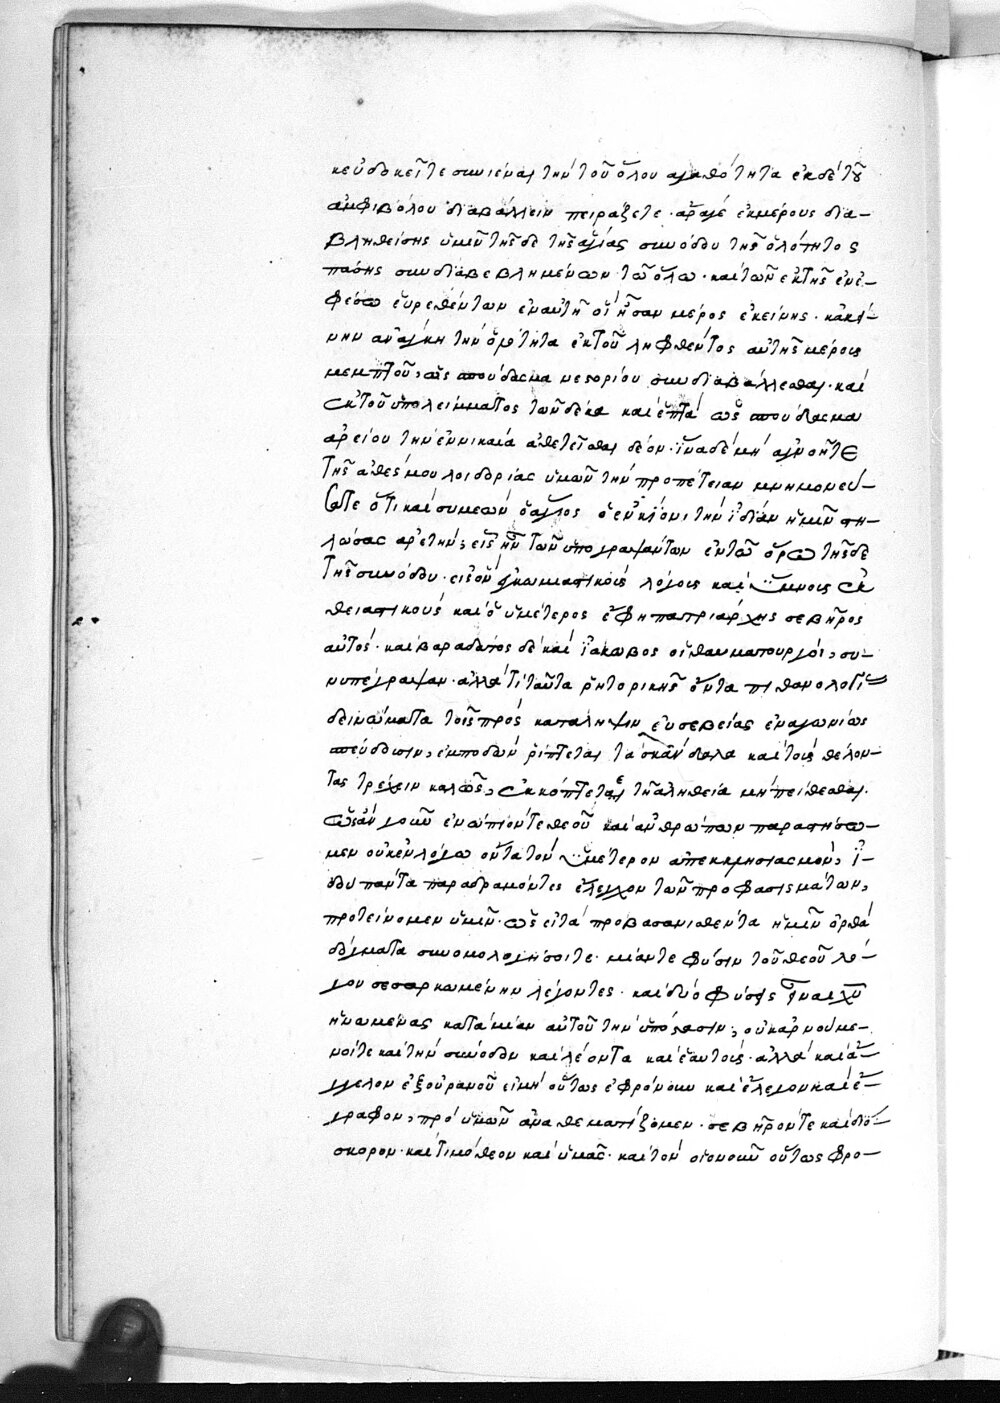 κευδοκεῖτε συνιέναι τὴν τοῦ ὅλου ἀγαθότητα ἐκ δὲ τοῦ
ἀμφιβόλου διαβάλλειν πειράζετε· ἆρά γε ἐκ μέρους δια-
βληθείσης ὑμῖν τῆς δὲ τῆς ἁγίας συνόδου τῆς ὁλότητος
πάσης συνδιαβεβλημένων τῶ ὅλω· καὶ τῶν ἐκ τῆς ἐν ἐ-
φέσω εὑρεθέντων ἐν αὐτῆ οἳ ἦσαν μέρος ἐκείνης· κἀκεί-
νην ἀνάγκη τὴν ὁρθότητα ἐκ τοῦ ληφθέντος αὐτῆς μέρους
μεμπτοῦ, ὡς σπούδασμα νεστορίου συνδιαβάλλεσθαι· καὶ
ἐκ τοῦ ὑπολείμματος τῶν δέκα καὶ ἑπτὰ ὡς σπούδασμα
ἀρείου τὴν ἐν νικαία ἀθετεῖσθαι δέον· ἵνα δὲ μὴ ἀγνοῆτε
τῆς ἀθέσμου λοιδορίας ὑμῶν τὴν προπέτειαν μνημονεύ-
σατε ὅτι καὶ συμεὼν ὁ ἅγιος ὁ ἐν κίονι τὴν ἰδίαν ἡμῖν στη-
λώσας ἀρετήν, εἷς ἦν τῶν ὑπογραψάντων ἐν τῶ ὅρω τῆσδε
τῆς συνόδου· εἰς ὃν ἐγκωμιαστικοῖς λόγοις καὶ ὕμνοις ἐκ-
θειαστικοὺς καὶ ὁ ὑμέτερος ἔφη πατριάρχης σεβῆρος
αὐτός· καὶ βαράδατος δὲ καὶ ἰάκωβος οἱ θαυματουργοὶ, συ-
νυπέγραψαν· ἀλλὰ τί ταῦτα ῥητορικῆς ὄντα πιθανολογί-
δεινώματα τοῖς πρὸς κατάληψιν εὐσεβείας ἐναγωνίως
σπεύδουσιν, ἐμποδὼν ῥίπτεται τὰ σκάνδαλα καὶ τοῖς θέλον-
τας τρέχειν καλῶς, ἐκκόπτεται τῆ ἀληθεία μὴ πείθεσθαι·
ὡς ἂν γοῦν ἐνώπιόν τε θεοῦ καὶ ἀνθρώπων παραστήσω-
μεν οὐκ εὔλογον ὄντα τὸν ὑμέτερον ἀπεκκλησιασμόν, ἰ-
δοὺ πάντα παραδραμόντες ἔλεγχον τῶν προφασισμάτων,
προτείνομεν ὑμῖν· ὡς εἴτα προβασανισθέντα ἡμῖν ὀρθὰ
δόγματα συνομολογήσοιτε· μίαν τε φύσιν τοῦ θεοῦ λό-
γου σεσαρκωμένην λέγοντες· καὶ δύο φύσεις ἐν αὐτῷ
ἡνωμένας κατὰ μίαν αὐτοῦ τὴν ὑπόστασιν, οὐκ ἀρνούμε-
νοί τε καὶ τὴν σύνοδον καὶ λέοντα καὶ ἑαυτοὺς· ἀλλὰ καὶ ἄ-
γγελον ἐξ οὐρανοῦ εἰ μὴ οὕτως ἐφρόνουν καὶ ἔλεγον καὶ ἔ-
γραφον, πρὸ ὑμῶν ἀναθεματίζομεν· σεβῆρόν τε καὶ διό-
σκορον· καὶ τιμόθεον καὶ ὑμᾶς· καὶ τὸν οἱονοῦν οὕτως φρο-